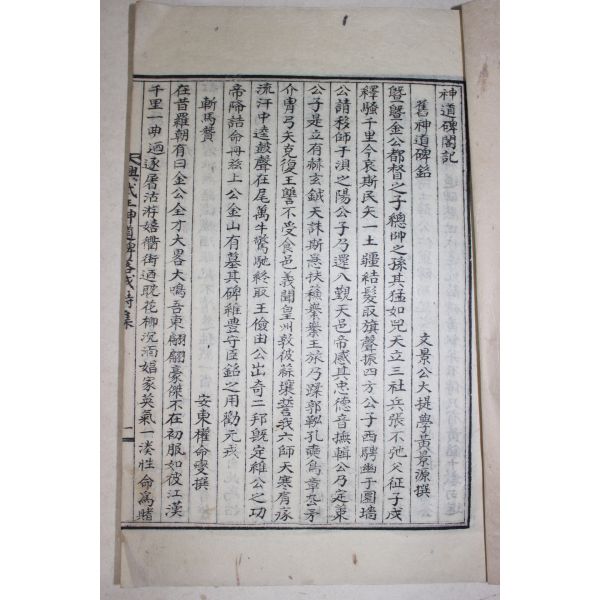 神道碑閣記
舊神道碑銘
文景公大提學黃景源撰
暨暨金公都督之子總帥之孫其猛如兕天立三社兵張不弛父征子戍
釋騷千里今哀斯民矣一土疆結髮取旗聲振四方公子西騁幽于圜墻
公請移師于漢之陽公子乃還八覲天邑帝感其忠德音撫輯公乃定策
公子是立有赫玄鉞天誅斯悉扶餘王旅乃蹂郭郛孔奭鳥章厹矛
介冑弓矢克復王讐不受食邑義聞皇州敦彼蘇壤誓我六師天寒有瘃
流汗中逵鼓聲在尾萬牛驚馳終取王儉由公出奇二邦旣定維公之功
帝降誥命毋玆上公金山有墓其碑維豊守臣銘之用勸元戎
斬馬贊
安東權命燮撰
在昔羅朝有曰金公全才大畧大鳴吾東翩翩豪傑不在初服如彼江漢
千里一曲逎逐屠沽游嬉衢街迺耽花柳沉湎娼家英氣一湊性命爲賭
興武王神道碑落成詩集
一